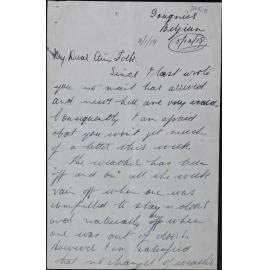 Gougnies
Belgian
5/1/19
My Dear Ain Folk.
Since I last wrote
you no mail has arrived
and news here are very scarce
Consequently I am afraid
that you won't get much
of a letter this week.
The weather has been
off and on all the week
rain off when one was
compelled to stay indoors
and naturally on when
one was out of doors.
However I am satisfied
that no changes of weather